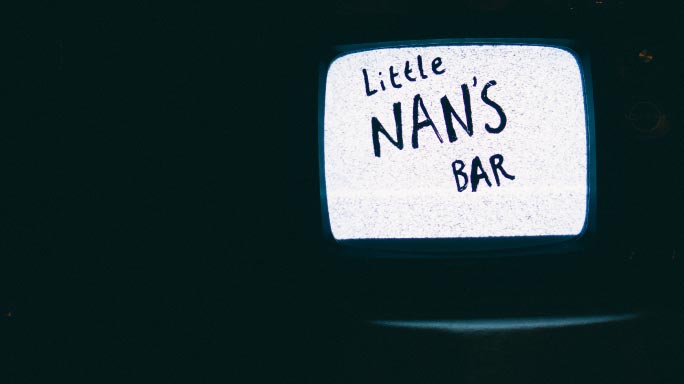 Little
NAN'S
BAR